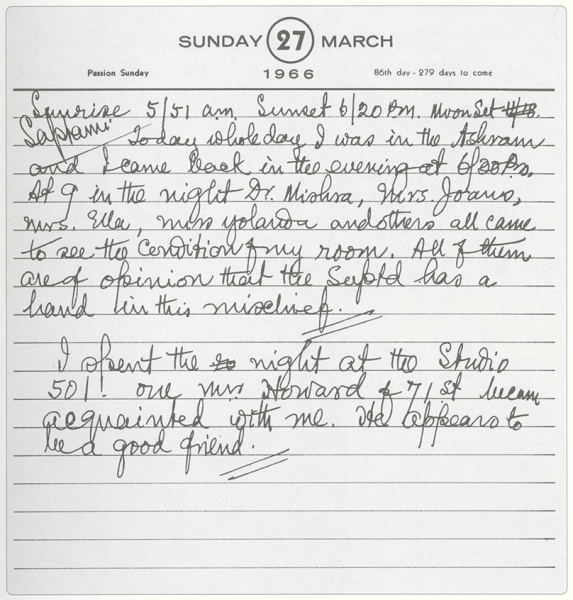 SUNDAY 27 MARCH
Passion Sunday 1966 86th day - 279 days to come
Sunrise 5/51 am. Sunset 6/20 Pm. Moon Set
Saptami Today whole day I was in the Ashram
and I came back in the evening at 6/20 Pm.
At 9 in the night Dr. Mishra, Mrs. Joans,
mrs. Ella, miss yolanda and others all came
to see the Condition of my room. All of them
are of opinion that the Suptd has a
hand in this mischief.
I spent the night at the Studio
501! one mr Howard of 71 St became
acquainted with me. He appears to
be a good friend.